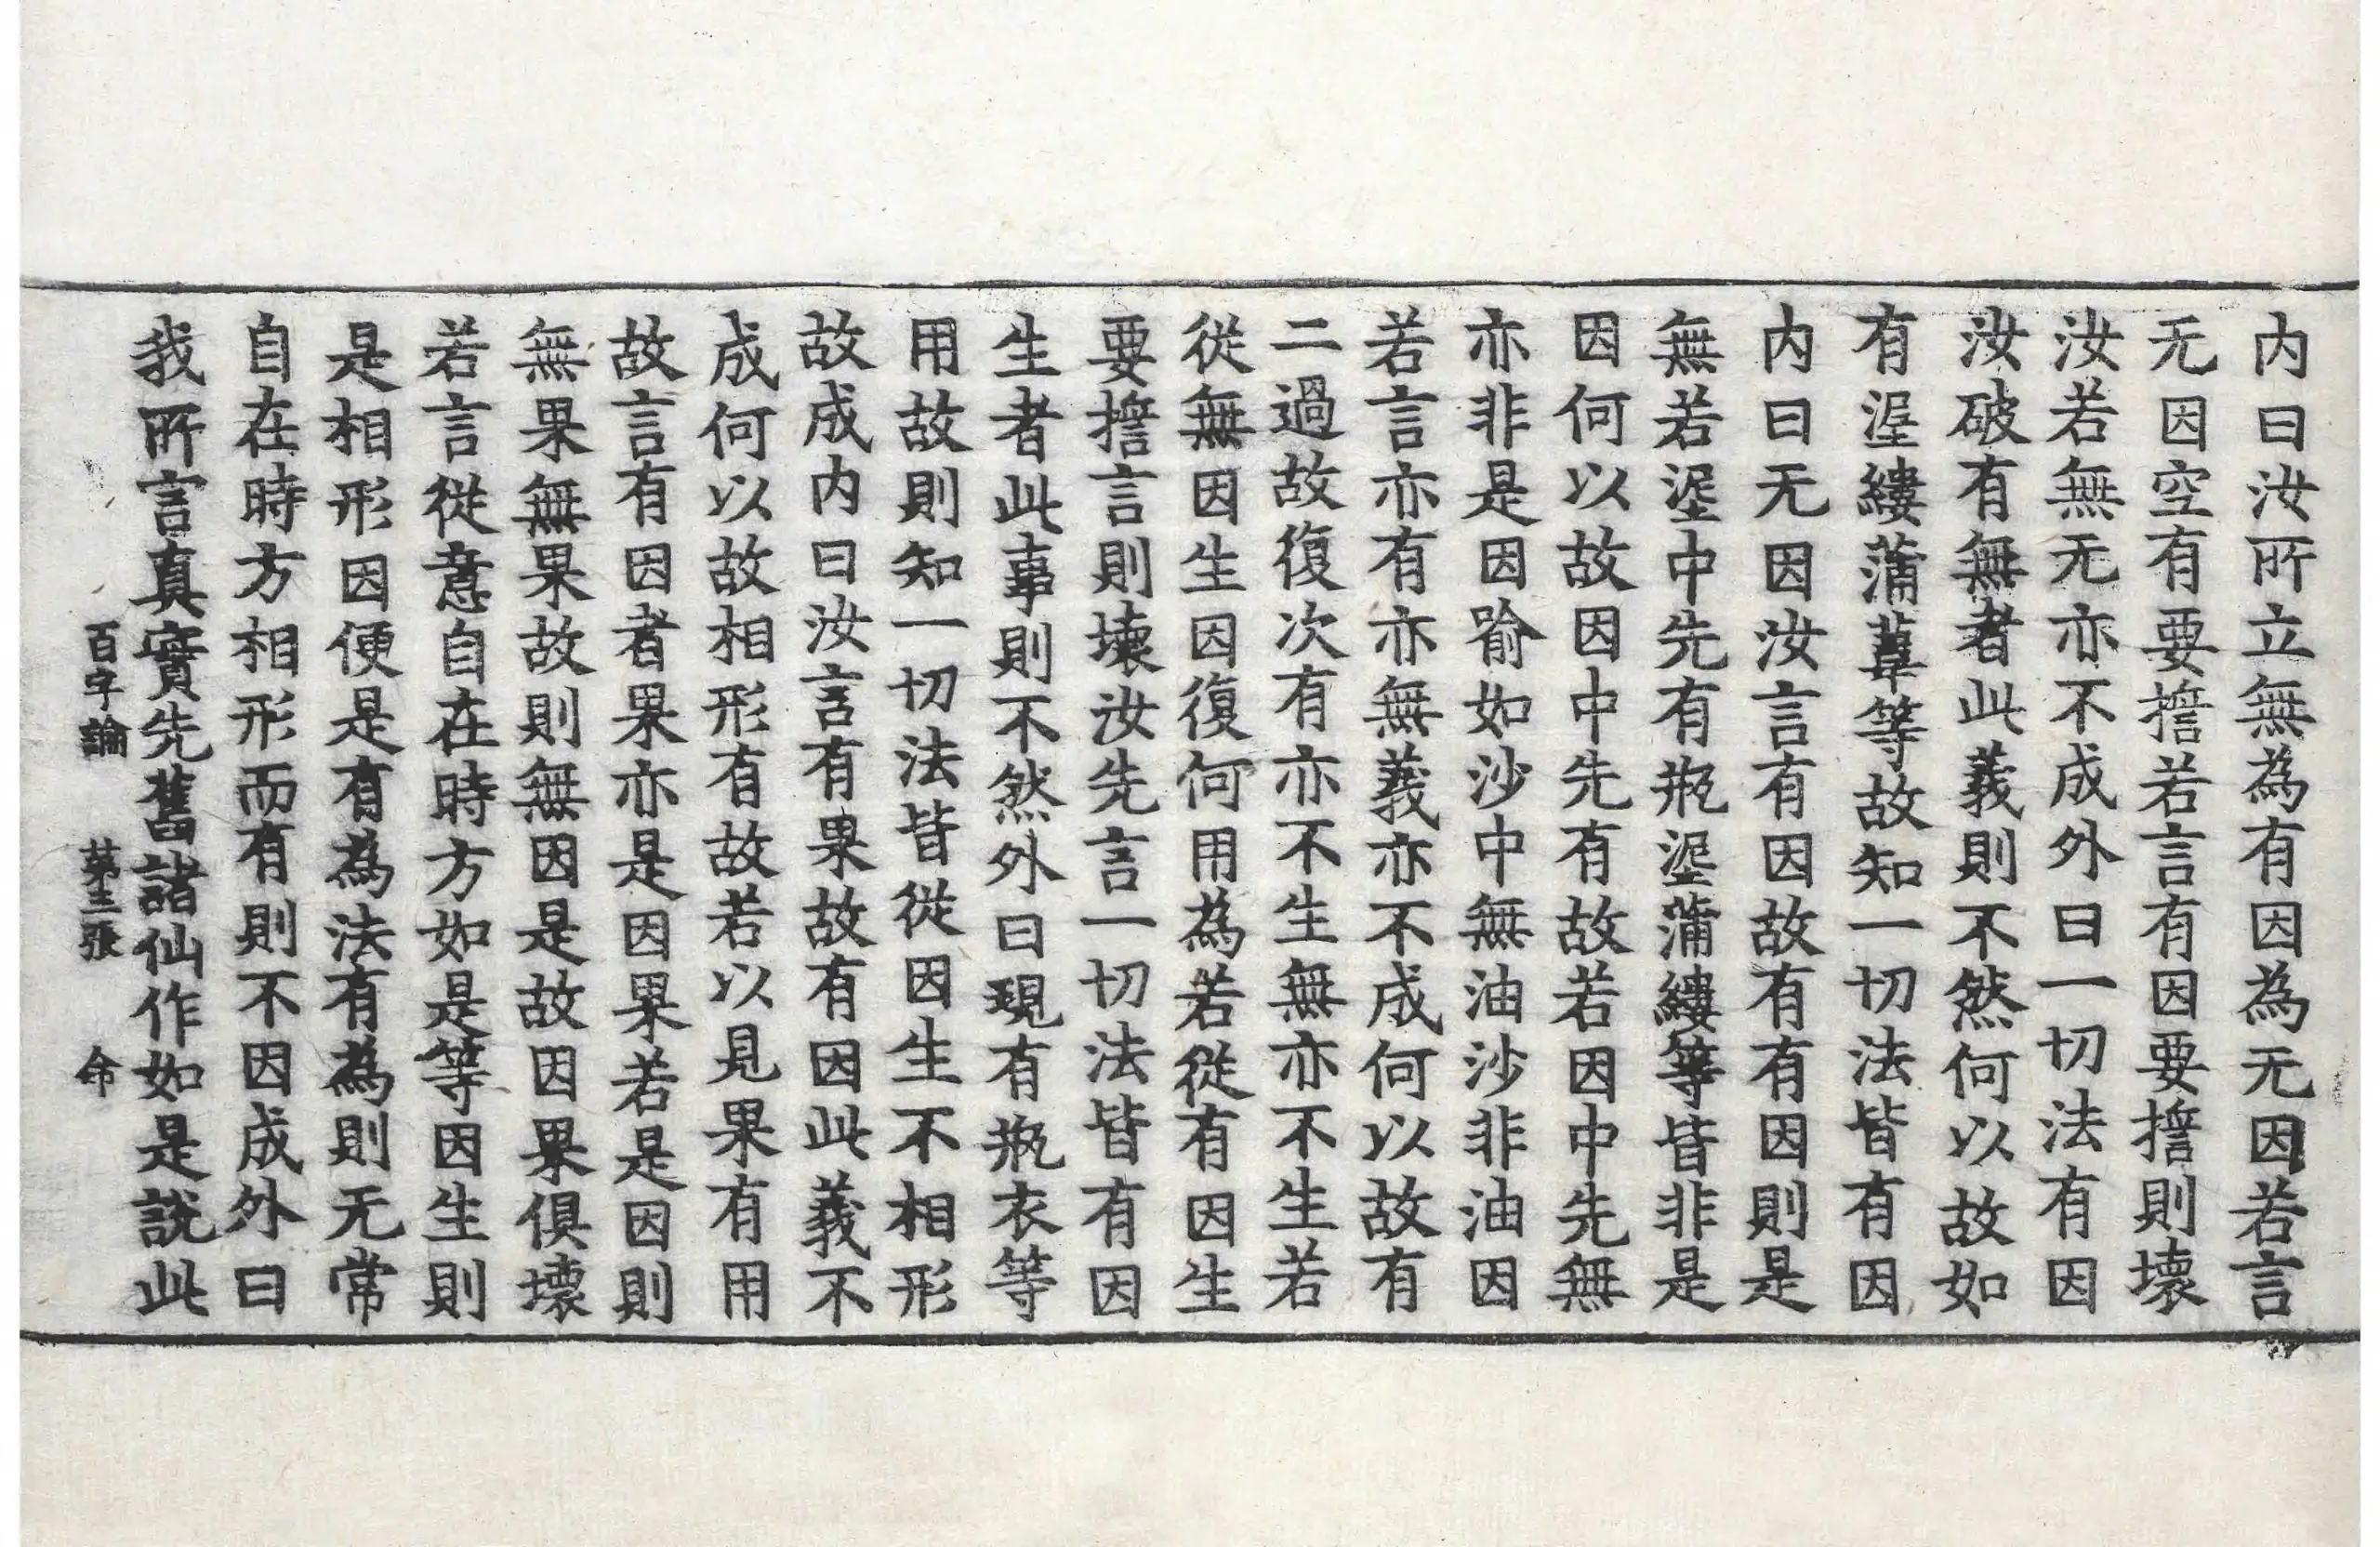 内曰汝所立無為有因為无因若言
无因空有要㨾若言有因要㨾則壞
汝若無无亦不成外曰一切法有因
汝破有無者此義則不然何以故如
有埿縷蒲葦等故知一切法皆有因
内曰无因汝言有因故有有因則是
無若埿中先有瓶埿蒲縷等皆非是
因何以故因中先有故若因中先無
亦非是因喻如沙中無油沙非油因
若言亦有亦無義亦不成何以故有
二過故復次有亦不生無亦不生若
從無因生因復何用為若從有因生
要㨾言則壞汝先言一切法皆有因
生者此事則不然外曰現有瓶衣等
用故則知一切法皆從因生不相形
故成内曰汝言有果故有因此義不
成何以故相形有故若以見果有用
故言有因者果亦是因果若是因則
無果無果故則無因是故因果俱壞
若言從意自在時方如是等因生則
是相形因便是有為法有為則无常
自在時方相形而有則不因成外曰
我所言真實先舊諸仙作如是說此
百字論 苐三張 命